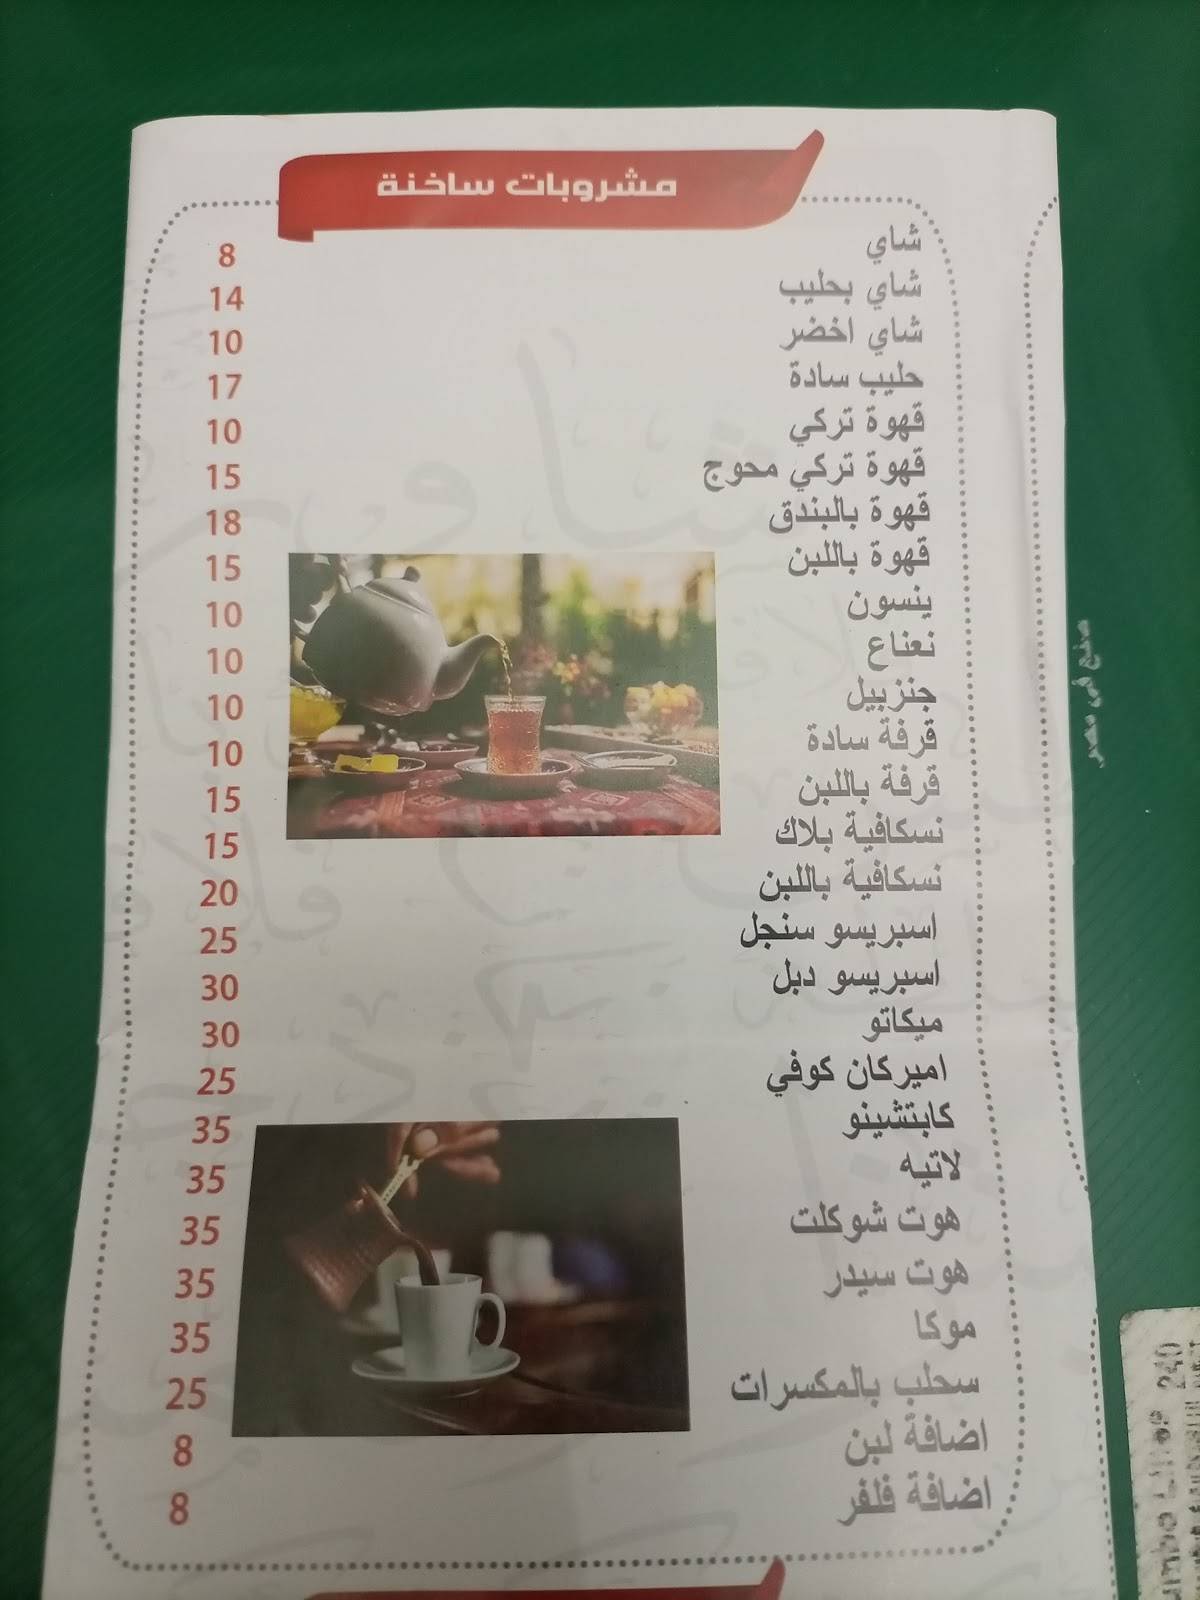 مشروبات ساخنة
شاي 8
شاي بحليب 14
شاي اخضر 10
حليب سادة 17
قهوة تركي 10
قهوة تركي محوج 15
قهوة بالبندق 18
قهوة باللبن 15
ينسون 10
نعناع 10
جنزبيل 10
قرفة سادة 10
قرفة باللبن 15
نسكافية بلاك 15
نسكافية باللبن 20
اسبريسو سنجل 25
اسبريسو دبل 30
ميكاتو 30
اميركان كوفي 25
كابتشينو 35
لاتيه 35
هوت شوكلت 35
هوت سيدر 35
موكا 35
سحلب بالمكسرات 25
اضافة لبن 8
اضافة فلفر 8
صنع في مصر
240